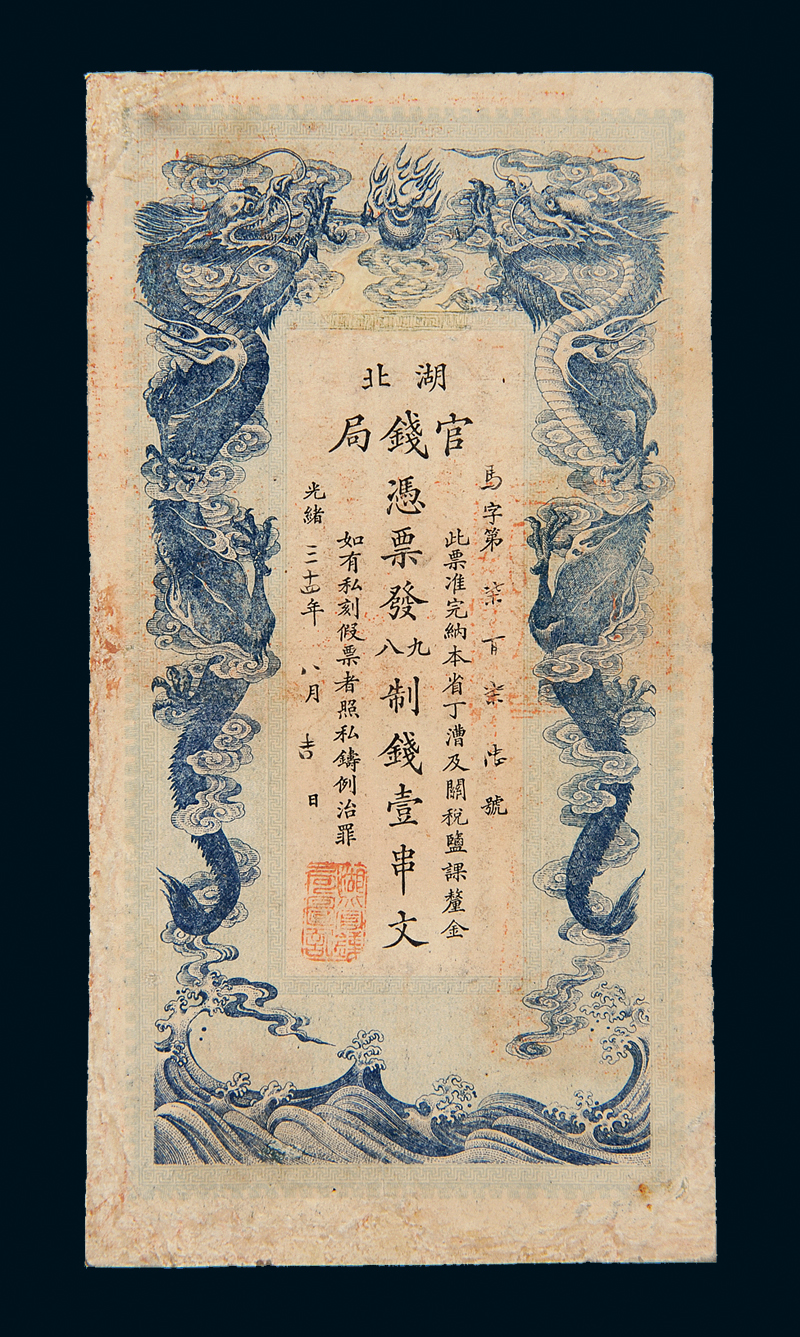 湖北
官錢局
馬字第柒百柒陸號
此票准完納本省丁漕及關稅鹽課釐金
憑票發九八制錢壹串文
如有私刻假票者照私鑄例治罪
光緒三十四年八月吉日